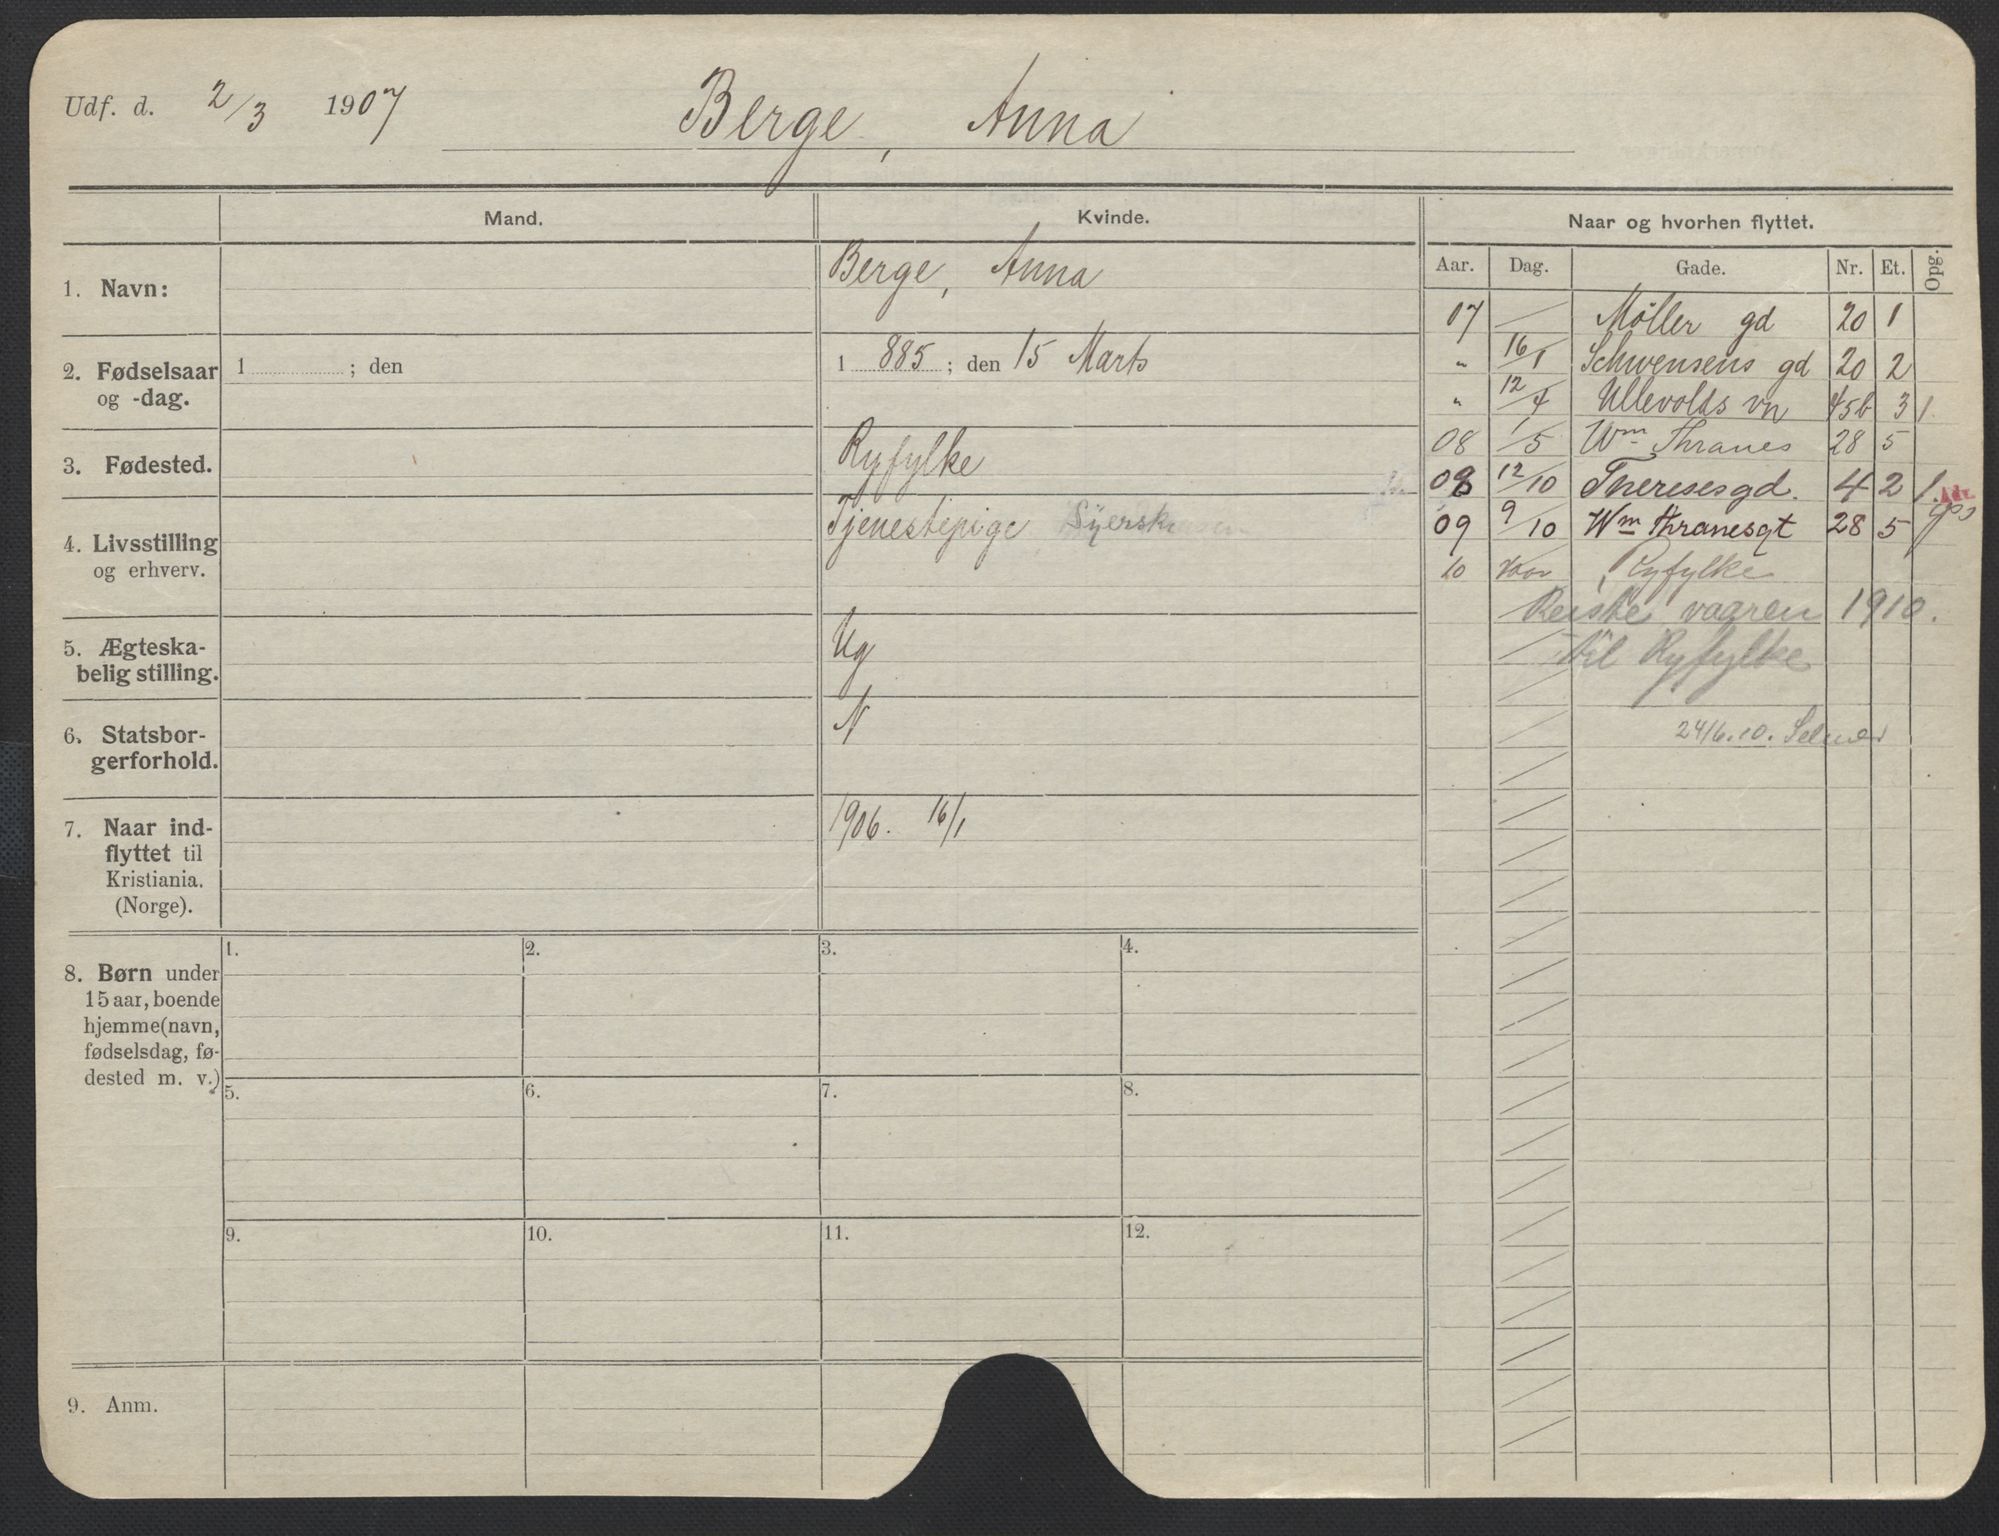 Udf. d. 2/3 1907 Berge, Anna
Mand. Kvinde. Naar og hvorhen flyttet.
Aar. Dag. Gade. Nr. Et. Opg.
1. Navn: Berge, Anna
2. Fødselsaar
og -dag.
1 ; den
1 885 ; den 15 Marts
3. Fødested. Ryfylke
4. Livsstilling
og erhverv.
Tjenestepige
5. Ægteska-
belig stilling.
Ug
6. Statsbor-
gerforhold.
N
7. Naar ind-
flyttet til
Kristiania.
(Norge).
1906. 16/1
07 Møller gd 20 1
" 16/1 Schwensens gd 20 2
" 12/4 Ullevolds vn 45b 3 1.
08 1/5 Wm Thranes 28 5
08 12/10 Theresesgd. 4 2 1.
09 9/10 Wm Thranesgt 28 5
10 Vaar Ryfylke
Reiste vaaren 1910.
til Ryfylke
24/6.10. Selmer
8. Børn under
15 aar, boende
hjemme (navn,
fødselsdag, fø-
dested m. v.)
1. 2. 3. 4.
5. 6. 7. 8.
9. 10. 11. 12.
9. Anm.